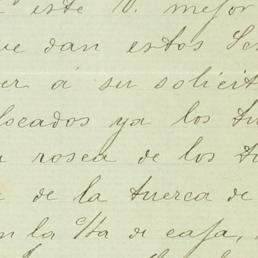 este V. mejor
que dan estos Se
á su solicit
locados ya los tu
rosca de los tu
de la tuerca de
n la c/ta de caja,